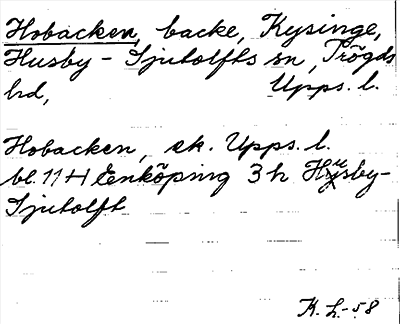 Hobacken, backe, Kysinge,
Husby-Sjutolfts sn, Trögds
hd, Upps. l.
Hobacken, ek. Upps. l.
bl. 11 H Enköping 3 h Husby-
Sjutolft
K. L.-58